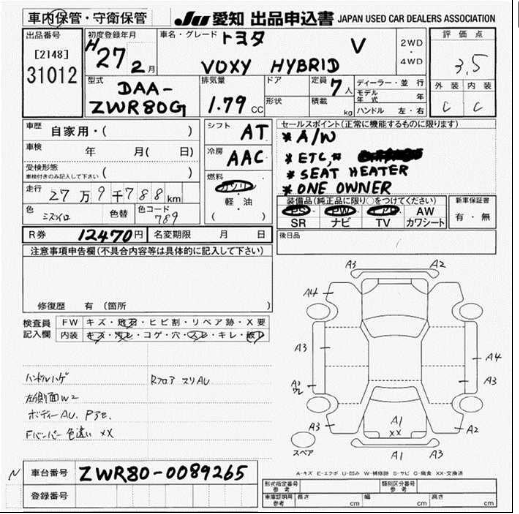 車内保管・守衛保管
JU 愛知 出品申込書 JAPAN USED CAR DEALERS ASSOCIATION
出品番号
[2148]
31012
初度登録年月
H27年2月
車名・グレード
トヨタ V
VOXY HYBRID
2WD
4WD
評価点
3.5
外装 内装
C C
型式
DAA-
ZWR80G
排気量
1.79 CC
ドア 定員 7人
形状 積載 kg
ディーラー・並行
モデル年式 年
ハンドル 左・右
車歴
自家用・( )
車検 年 月( 日)
受検形態
車検付きのみ記入して下さい
走行
27万9千788km
色 色替 色コード
789
シフト AT
冷房 AAC
燃料
ガソリン
軽油
( )
セールスポイント(正常に機能するものに限ります)
*A/W
*ETC,*
*SEAT HEATER
*ONE OWNER
装備品(純正品に限り○をつけてください)
PS PW AW
SR ナビ TV カワシート
新車保証書
有・無
R券 12470円 名変期限 月 日
後日品
注意事項申告欄(不具合内容等は具体的に記入して下さい)
修復歴 有(箇所 )
検査員
記入欄
FW キズ・飛石・ヒビ割・リペア跡・X要
内装 キズ・汚レ・コゲ・穴・スレ・キレ・破レ
ハンドルハゲ
Rフロア スリAU
左側面W2
ボディーAU.
Fバンパー色違い XX
A3 A2
A4
A3 A4
A3
A2 A3
A1
XX
A1 A2
A3
スペア
A-キズ E-エクボ U-凹み W-補修跡 S-サビ C-腐食 XX-交換済
N
車台番号 ZWR80-0089265
登録番号
形式指定番号 類別区分番号
参考 参考
車庫証明用
参考
長さ cm 幅 cm 高さ cm